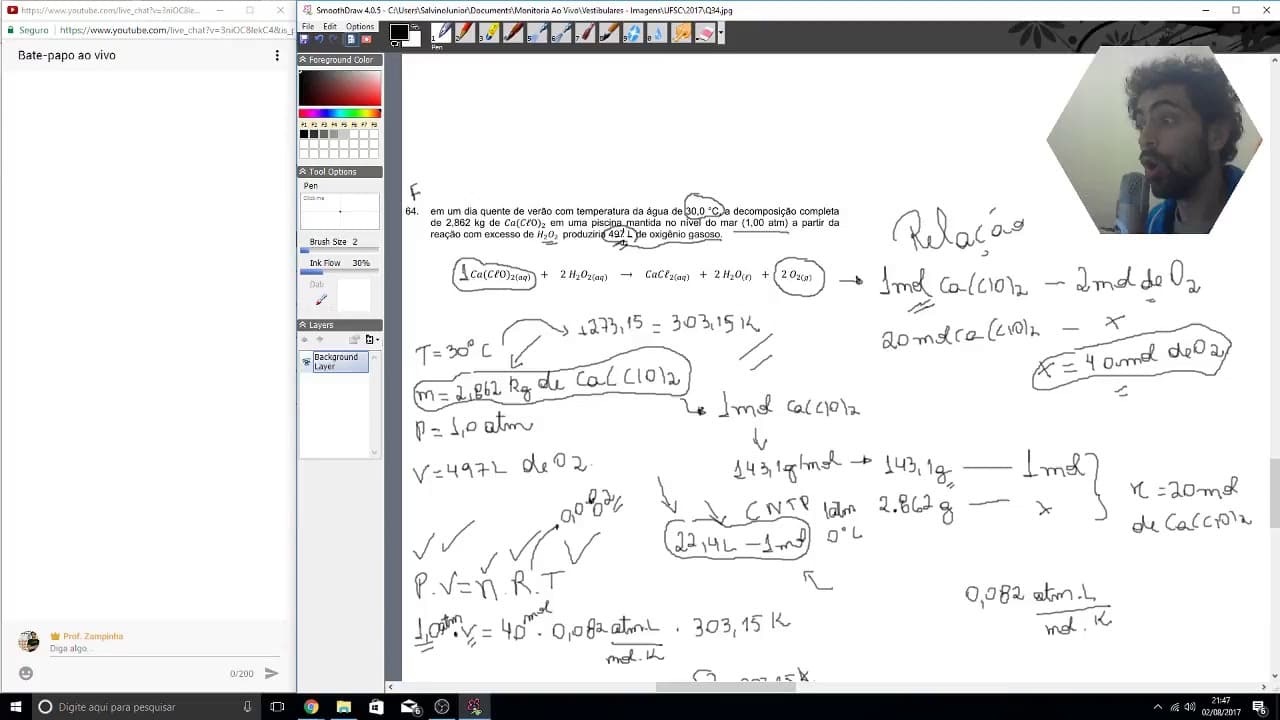 https://www.youtube.com/live_chat?v=3niOC8Iek...
Seguro
https://www.youtube.com/live_chat?v=3niOC8IekC4&is_p
Bate-papo ao vivo
Prof. Zampinha
Diga algo...
0/200
SmoothDraw 4.0.5 - C:\Users\SalvinoJunior\Documents\Monitoria Ao Vivo\Vestibulares - Imagens\UFSC\2017\Q34.jpg
File Edit Options
Pen
Foreground Color
F1 F2 F3 F4 F5 F6 F7 F8
Tool Options
Pen
Click me
Brush Size 2
Ink Flow 30%
Dab
Layers
Background Layer
F
64. em um dia quente de verão com temperatura da água de 30,0 °C, a decomposição completa
de 2,862 kg de Ca(CℓO)2 em uma piscina mantida no nível do mar (1,00 atm) a partir da
reação com excesso de H2O2 produziria 497 L de oxigênio gasoso.
1 Ca(CℓO)2(aq) + 2 H2O2(aq) → CaCℓ2(aq) + 2 H2O(ℓ) + 2 O2(g)
Relação
→ 1mol Ca(ClO)2 — 2mol de O2
20 mol Ca(ClO)2 — x
x = 40 mol de O2
T = 30°C
+273,15 = 303,15 K
m = 2,862 kg de Ca(ClO)2
P = 1,0 atm
V = 497 L de O2
1mol Ca(ClO)2
143,1g/mol → 143,1g — 1mol
2.862 g — x
n = 20 mol
de Ca(ClO)2
CNTP 1atm
0°C
22,4L — 1mol
0,082
P.V = n.R.T
1,0 atm . V = 40 mol . 0,082 atm.L . 303,15 K
mol.K
0,082 atm.L
mol.K
Digite aqui para pesquisar
21:47
02/08/2017